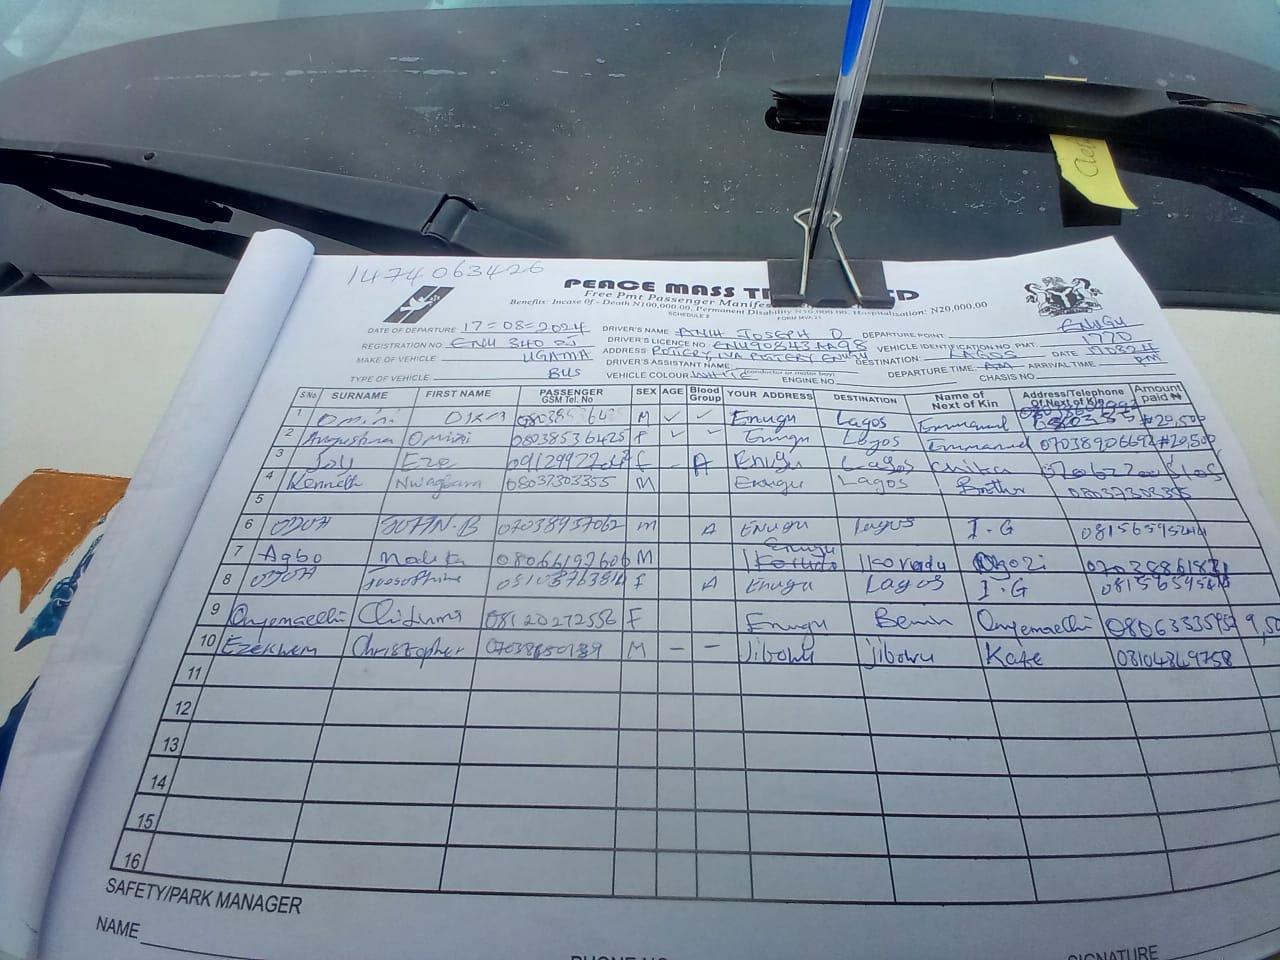 1474063426
PEACE MASS TR LTD
Free Pmt Passenger Manifes
Benefits: Incase Of - Death N100,000.00, Permanent Disability N50,000.00, Hospitalisation: N20,000.00
SCHEDULE 8 FORM MVA 21
DATE OF DEPARTURE 17=08=2024 DRIVER'S NAME ANIH JOSEPH D DEPARTURE POINT ENUGU
REGISTRATION NO ENU 340 DRIVER'S LICENCE NO ENU90843AA98 VEHICLE IDENTIFICATION NO. PMT. 1770
MAKE OF VEHICLE UGAMA ADDRESS POTTERY IVA POTTERY ENUGU DESTINATION: LAGOS DATE
DRIVER'S ASSISTANT NAME (conductor or motor boy) DEPARTURE TIME: AM ARRIVAL TIME: PM
TYPE OF VEHICLE: BUS VEHICLE COLOUR WHITE ENGINE NO. CHASIS NO.
S/No. SURNAME FIRST NAME PASSENGER GSM Tel. No SEX AGE Blood Group YOUR ADDRESS DESTINATION Name of Next of Kin Address/Telephone Of Next of Kin Amount paid ₦
1 Omini M ✓ ✓ Enugu Lagos Emmanuel #20,500
2 Omini 08038536425 F ✓ ✓ Enugu Lagos Emmanuel 07038906692 #20,500
3 Joy Eze F - A Enugu Lagos Chika
4 Kenneth Nwagbara 08037303355 M Enugu Lagos Brother 08037303355
5
6 ODUH JOHN.B 07038937062 M A ENUGU Lagos I.G
7 Agbo 08066197606 M Enugu Ikorodu Ngozi
8 ODUH Josephine F A Enugu Lagos I.G
9 Onyemaechi Chidinma 08120272556 F Enugu Benin Onyemaechi 9,50
10 Ezekwem Christopher M - - Jibowu Jibowu Kate 08104849758
11
12
13
14
15
16
SAFETY/PARK MANAGER
NAME PHONE NO SIGNATURE